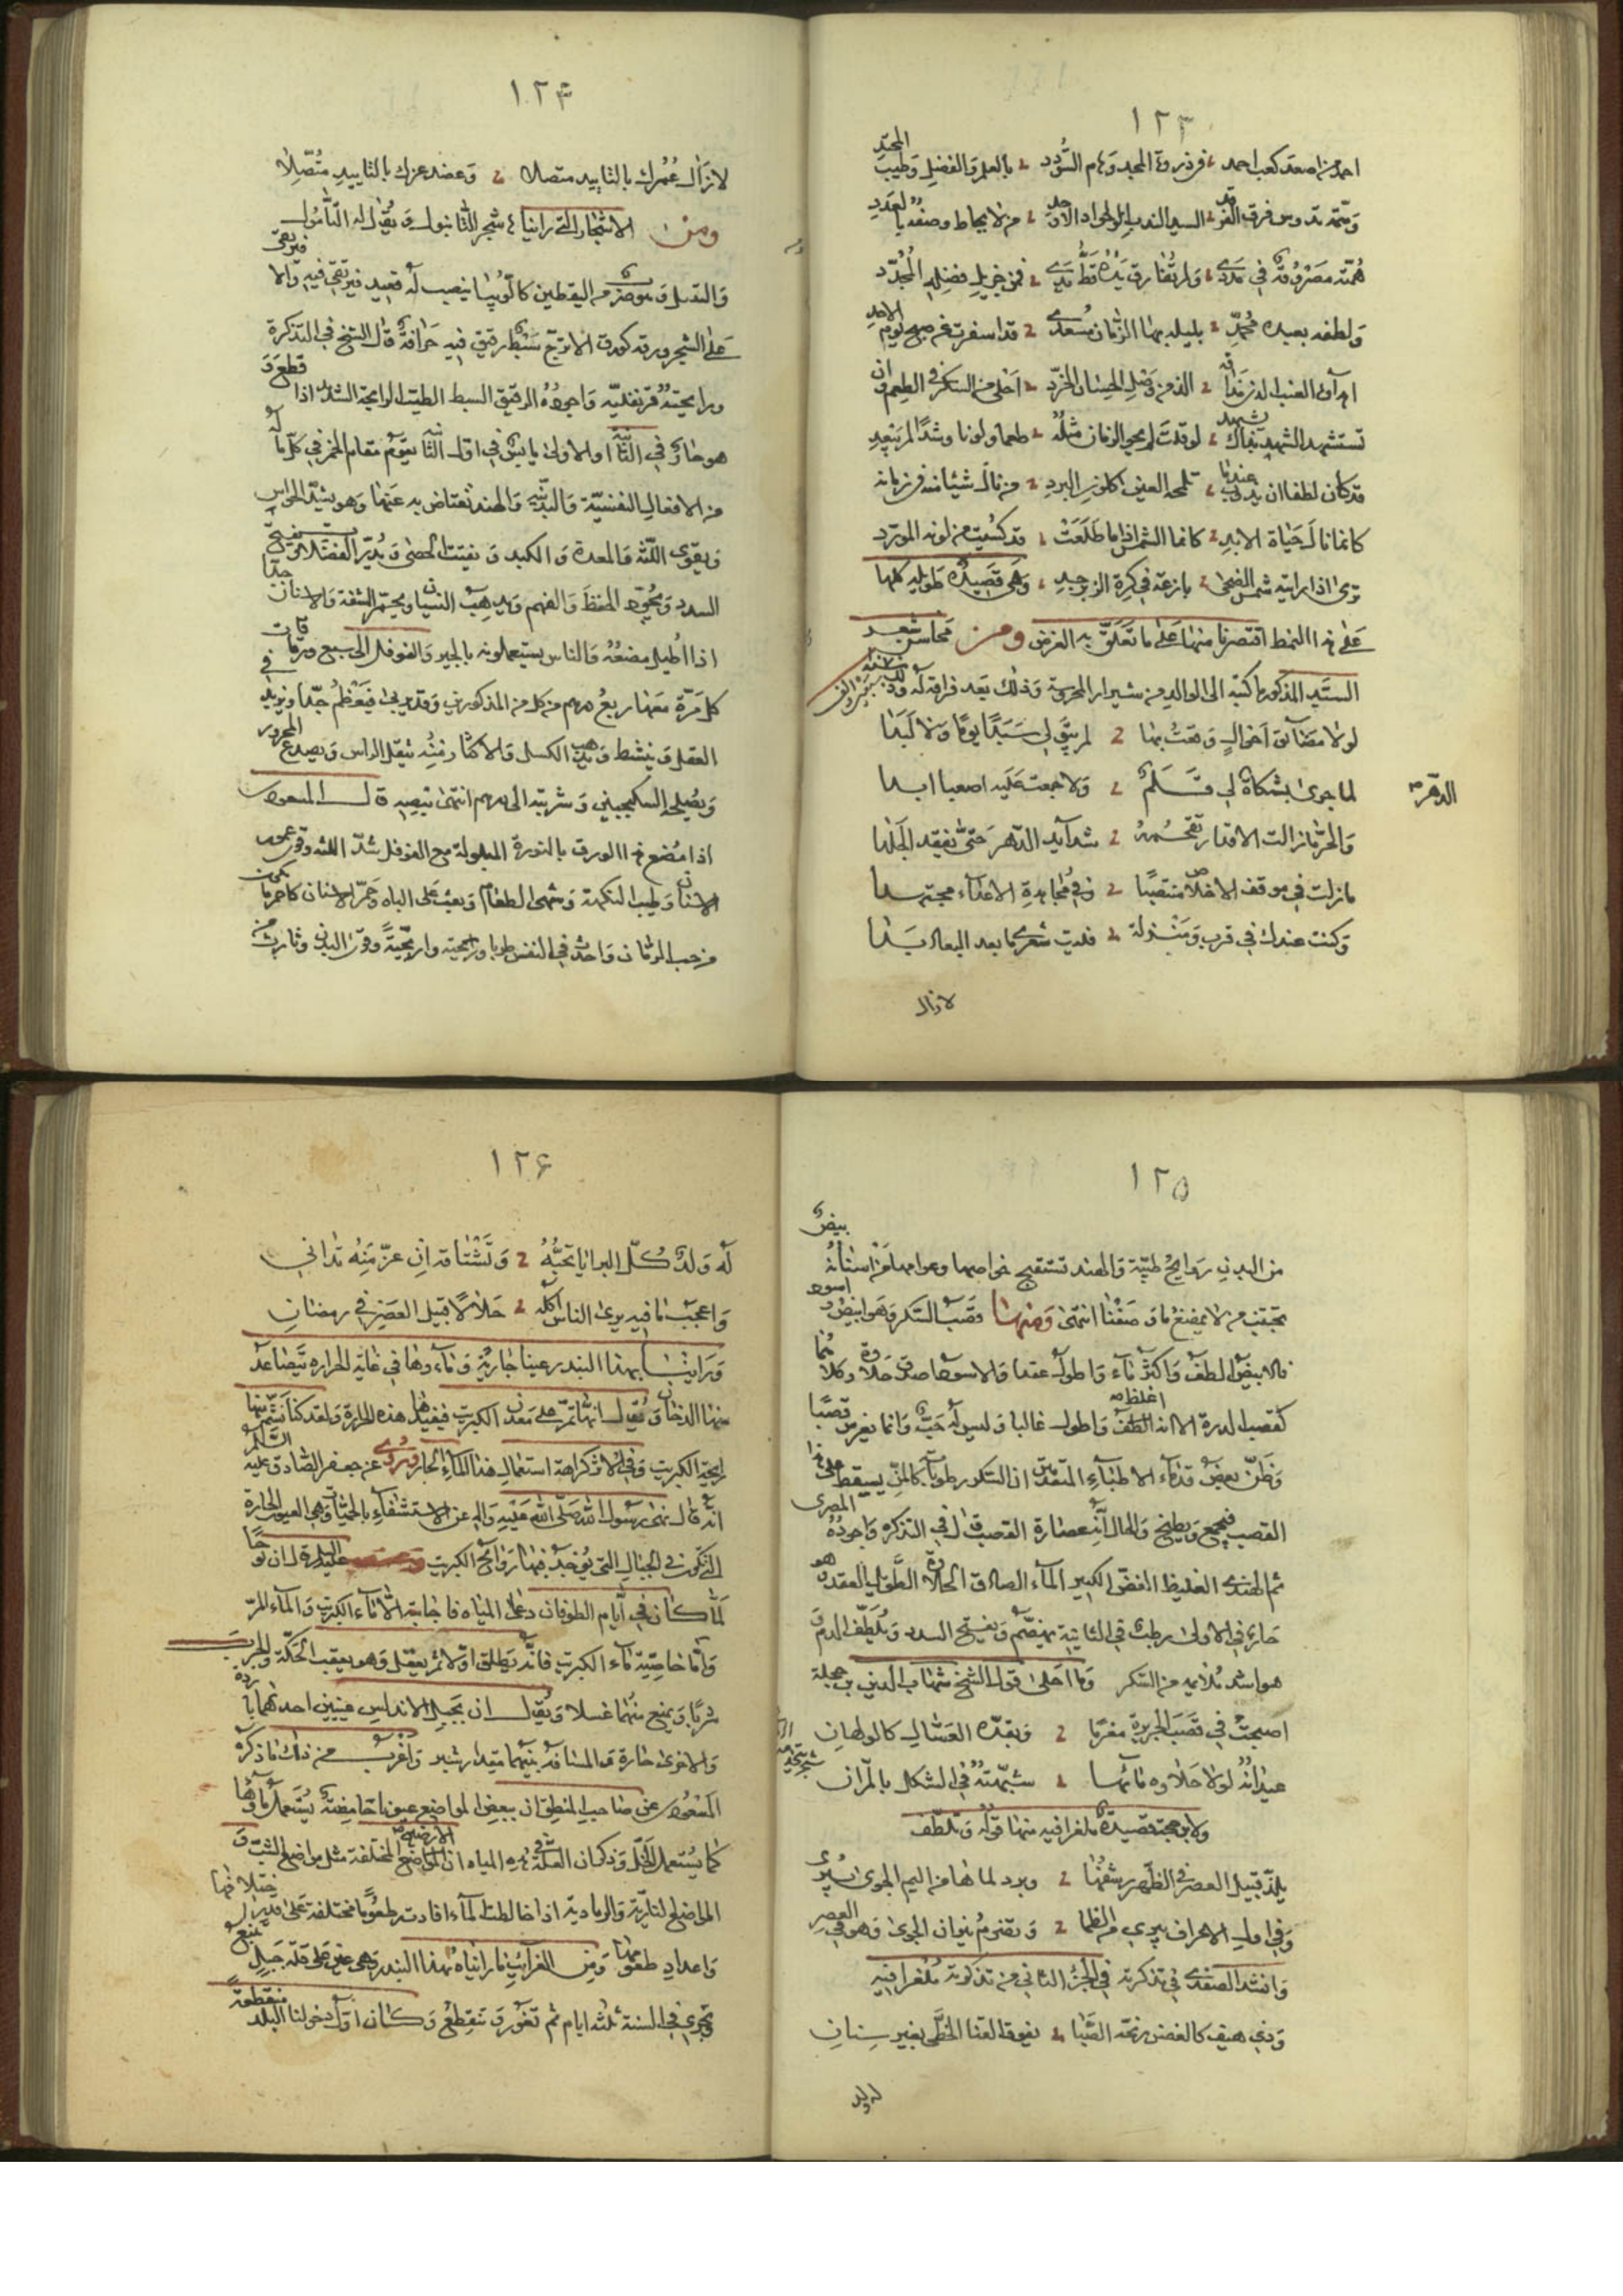 ١٢٣
احمد من اصعد كعب احمد في ذروة المجد وهام السؤدد بالعلم والفضل وطيب المحتد
همته مصروفة في ولم تفارق يده قط فمن جزيل فضله المجدد
ولطفه بعيده بليلة بها الزمان مسعدي قد اسفرت عن صبح يوم الاحد
اهدى العنب الذ من وصل الحسان الخرد احلى من السكر في الطعم
طعما ولونا
قد كان لطفا ان يذوب عندما تلمحه العين كلون البرد من نال شيئا منه في زمانه
كانما نال حياة الابد كانما الشمس اذا ما طلعت قد كسيت من لونه المورد
ترى اذا رايته شمس الضحى بازغة في كرة الزبرجد وهي قصيدة طويلة كلها
على هذا النمط اقتصرنا منها على ما تعلق به الغرض ومن محاسن شعر
السيد المذكور ما كتبه الى الوالد من شيراز المحروسة وذلك بعد فراقه له
لولا مضائق احوال وقعت بها لم يبق لي سبدا يوما ولا لبدا
لما جرى بشكاة لي قلم ولا جمعت عليه اصبعا ابدا
الدهر
والحر ما زالت الاقدار تقحمه شدائد الدهر حتى يفقد الجلدا
ما زلت في موقف الاخلاص منتصبا وفي مجاهدة الاعداء مجتهدا
وكنت عندك في قرب ومنزلة فليت شعري ما بعد البعاد بدا
لا زال
١٢٤
لا زال عمرك بالتاييد متصلا وعضد عزك بالتاييد متصلا
ومن الاشجار التي رايناها شجر التانبول ويقال له التامول
والتنبل وهو ضرب من اليقطين كاللوبيا ينصب له قصب فيرتقي فيه والا فيرتقي
على الشجر ورقه كورق الاترج سبط رقيق فيه حرافة قال الشيخ في التذكرة
ورايحته قرنفلية واجوده الرقيق السبط الطيب الرايحة اذا قطع
هو حار في الثانية او الاولى يابس في اول الثانية يقوم مقام الخمر في كل ما له
من الافعال النفسية والبدنية والهند تعتاض به عنها وهو يشد الحواس
ويقوي اللثة والمعدة والكبد ويفتت الحصى ويدر الفضلات وتفتيح
السدد ويجود الحفظ والفهم ويذهب النسيان ويحمر الشفة والاسنان جدا
اذا اطيل مضغه والناس يستعملونه بالجير والفوفل الى سبع ورقات في
كل مرة معها ربع درهم من كل من المذكورين وقد يربى فيعظم جدا ويزيد
العقل وينشط ويذهب الكسل والاكثار منه يثقل الراس ويصدع المحرور
ويصلحه السكنجبين وشربته الى درهم انتهى بنصه قال المسعودي
اذا مضغ هذا الورق بالنورة المبلولة مع الفوفل شد اللثة وقوى عمود
الاسنان وطيب النكهة وشهى الطعام وبعث على الباه وحمر الاسنان كاحمر ما يكون
من حب الرمان واحدث في النفس طربا واريحية وقوى البدن وثارت من
١٢٥
من البدن روايح طيبة والهند تستقبح خواصها وعوامها من اسنانه بيض
وتجتنب من لا يمضغ ما وصفنا انتهى ومنها قصب السكر وهو ابيض واسود
فالابيض الطف واكثر ماء واطول عقدا والاسود اصدق حلاوة وكلاهما
كقصب الذرة الا انه اغلظ واطول غالبا وليس له حب وانما يغرس قصبا
وظن بعض قدماء الاطباء المتقدمين ان السكر رطوبات كالمن يسقط على هذا
القصب فيجمع ويطبخ والحال انه عصارة القصب قال في التذكره واجوده المصري
ثم الهندي الغليظ الغض الكبير الماء الصادق الحلاوة الطويل العقد وهو
حار في الاولى رطب في الثانية يهضم ويفتح السدد ويلطف الدم و
هو اشد ملايمه من السكر وما احلى قول الشيخ شهاب الدين بن حجلة
اصبحت في قصب الجزيرة مغرما وبقده العسال كالولهان
عيدانه لولا حلاوة مائها شبهته في الشكل بالمران
ولابن حجة قصيدة ملغزا فيه منها قوله وتلطف
يلذ قبيل العصر في الظهر رشفها وبرد لماها من اليم الجوى يبري
وانشد الصفدي في تذكرته في الجزء الثاني من تذكرته ملغزا فيه
وذي هيف كالغصن رنحه الصبا يفوق القنا الخطي بغير سنان
له ولد
١٢٦
له ولد كل البرايا تحبه وتشتاقه ان عز منه تداني
واعجب ما فيه يرى الناس اكله حلالا قبيل العصر في رمضان
وراينا بهذا البندر عينا جارية وماءوها في غاية الحراره يتصاعد
منها الدخان ويقال انها تمر على معدن الكبريت فيفيدها هذه الحرارة ولقد كنا نشم منها
رايحة الكبريت وفي كراهة استعمال هذا الماء الحار وردى عن جعفر الصادق عليه السلم
انه قال نهى رسول الله صلى الله عليه واله عن الاستشفاء بالحميات وهي العيون الحارة
التي تكون في الجبال التي يوجد فيها روائح الكبريت ان نوحا
لما كان في ايام الطوفان دعا المياه فاجابته الا ماء الكبريت والماء المر
واما خاصية ماء الكبريت فانه يطلق اولا ثم يعقل وهو يعقب الحكة والجرب
شربا وينفع منهما غسلا ويقال ان بجبل الاندلس عينين احداهما باردة
والاخرى حارة والمسافة بينهما مقدار شبر واغرب من ذلك ما ذكره
المسعودي عن صاحب المنطق ان ببعض المواضع عيونا حامضة يستعمل ماؤها
كما يستعمل الخل وذكر ان العلة في هذه المياه ان المواضع الارضية المختلفة مثل مواضع الشب و
المواضع النارية والرمادية اذا خالطت الماء افادته طعوما مختلفة على مقدار اختلافها
واعداد طعومها ومن الغرائب ما رايناه بهذا البندر وهي عين على قلة جبل تنبع
وتجري في السنة ثلثه ايام ثم تغور وتنقطع وكان اول دخولنا البلد منقطعة